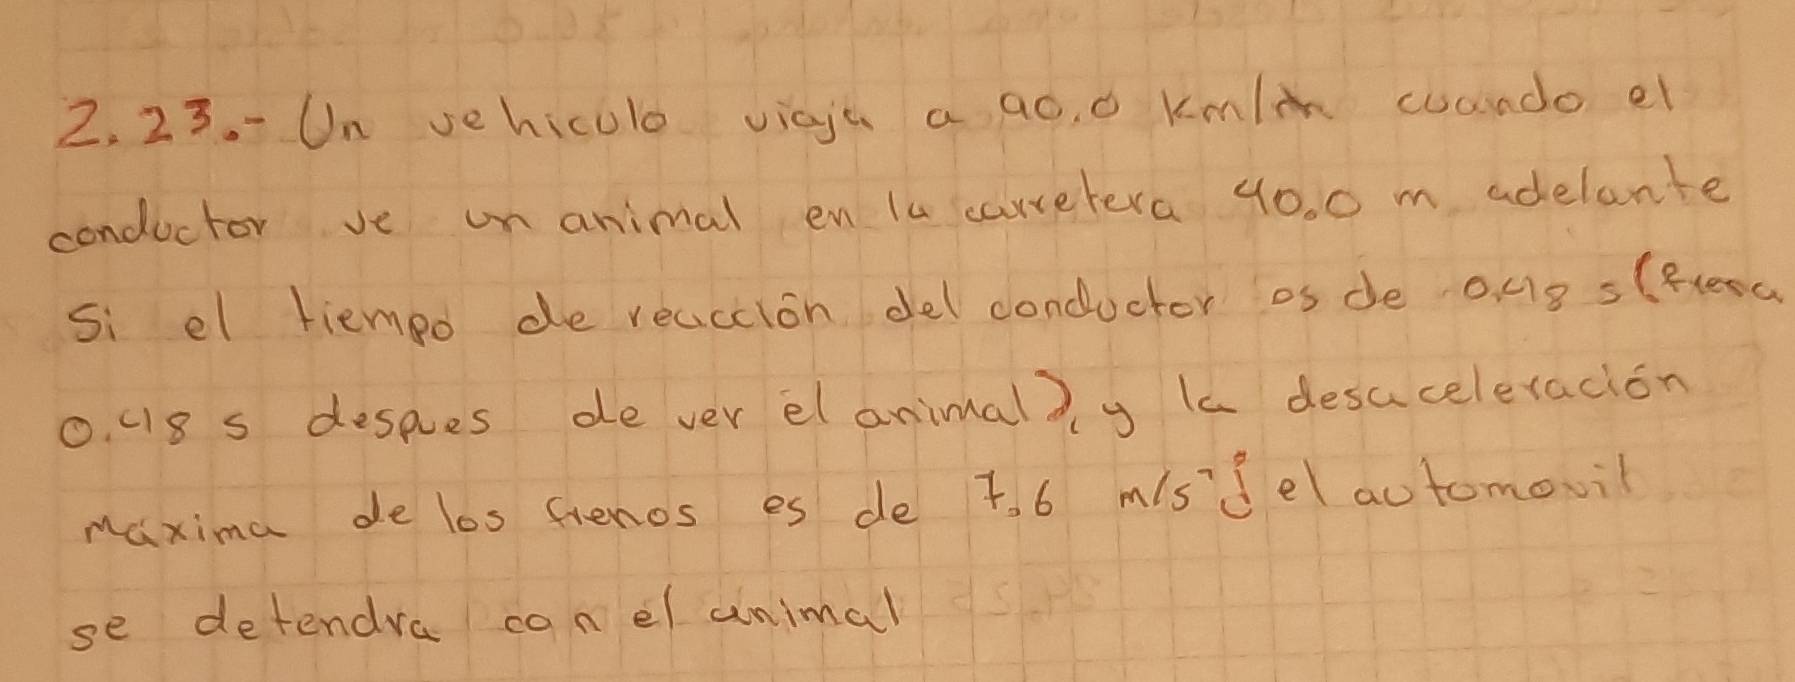 2.23.- Un vehiculo viaja a 90.0 Km/h cuando el
conductor ve un animal en la carretera 40.0 m adelante
Si el tiempo de reacción del conductor es de 0.48 s (frena
0.48 s despues de ver el animal), y la desaceleración
máxima de los frenos es de 7.6 m/s² ¿ el automovil
se detendra con el animal